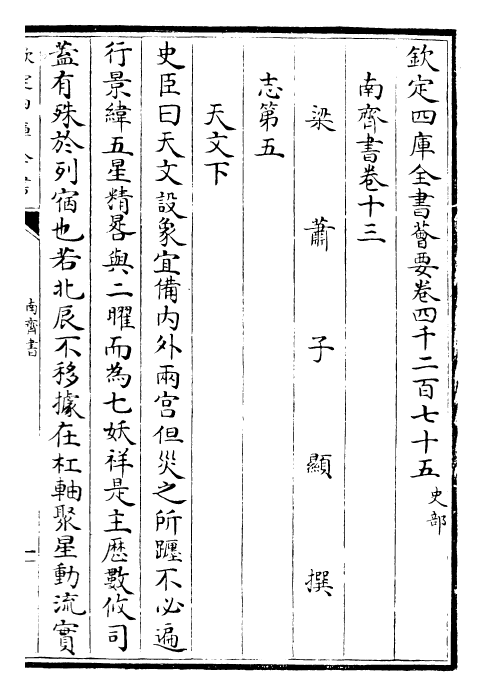 欽定四庫全書薈要卷四千二百七十五 史部
南齊書卷十三
梁蕭子顯撰
志第五
天文下
史臣曰天文設象宜備内外兩宫但災之所躔不必遍
行景緯五星精晷與二曜而為七妖祥是主厯數攸司
葢有殊於列宿也若北辰不移據在杠軸聚星動流實
欽定四庫全書
南齊書
一